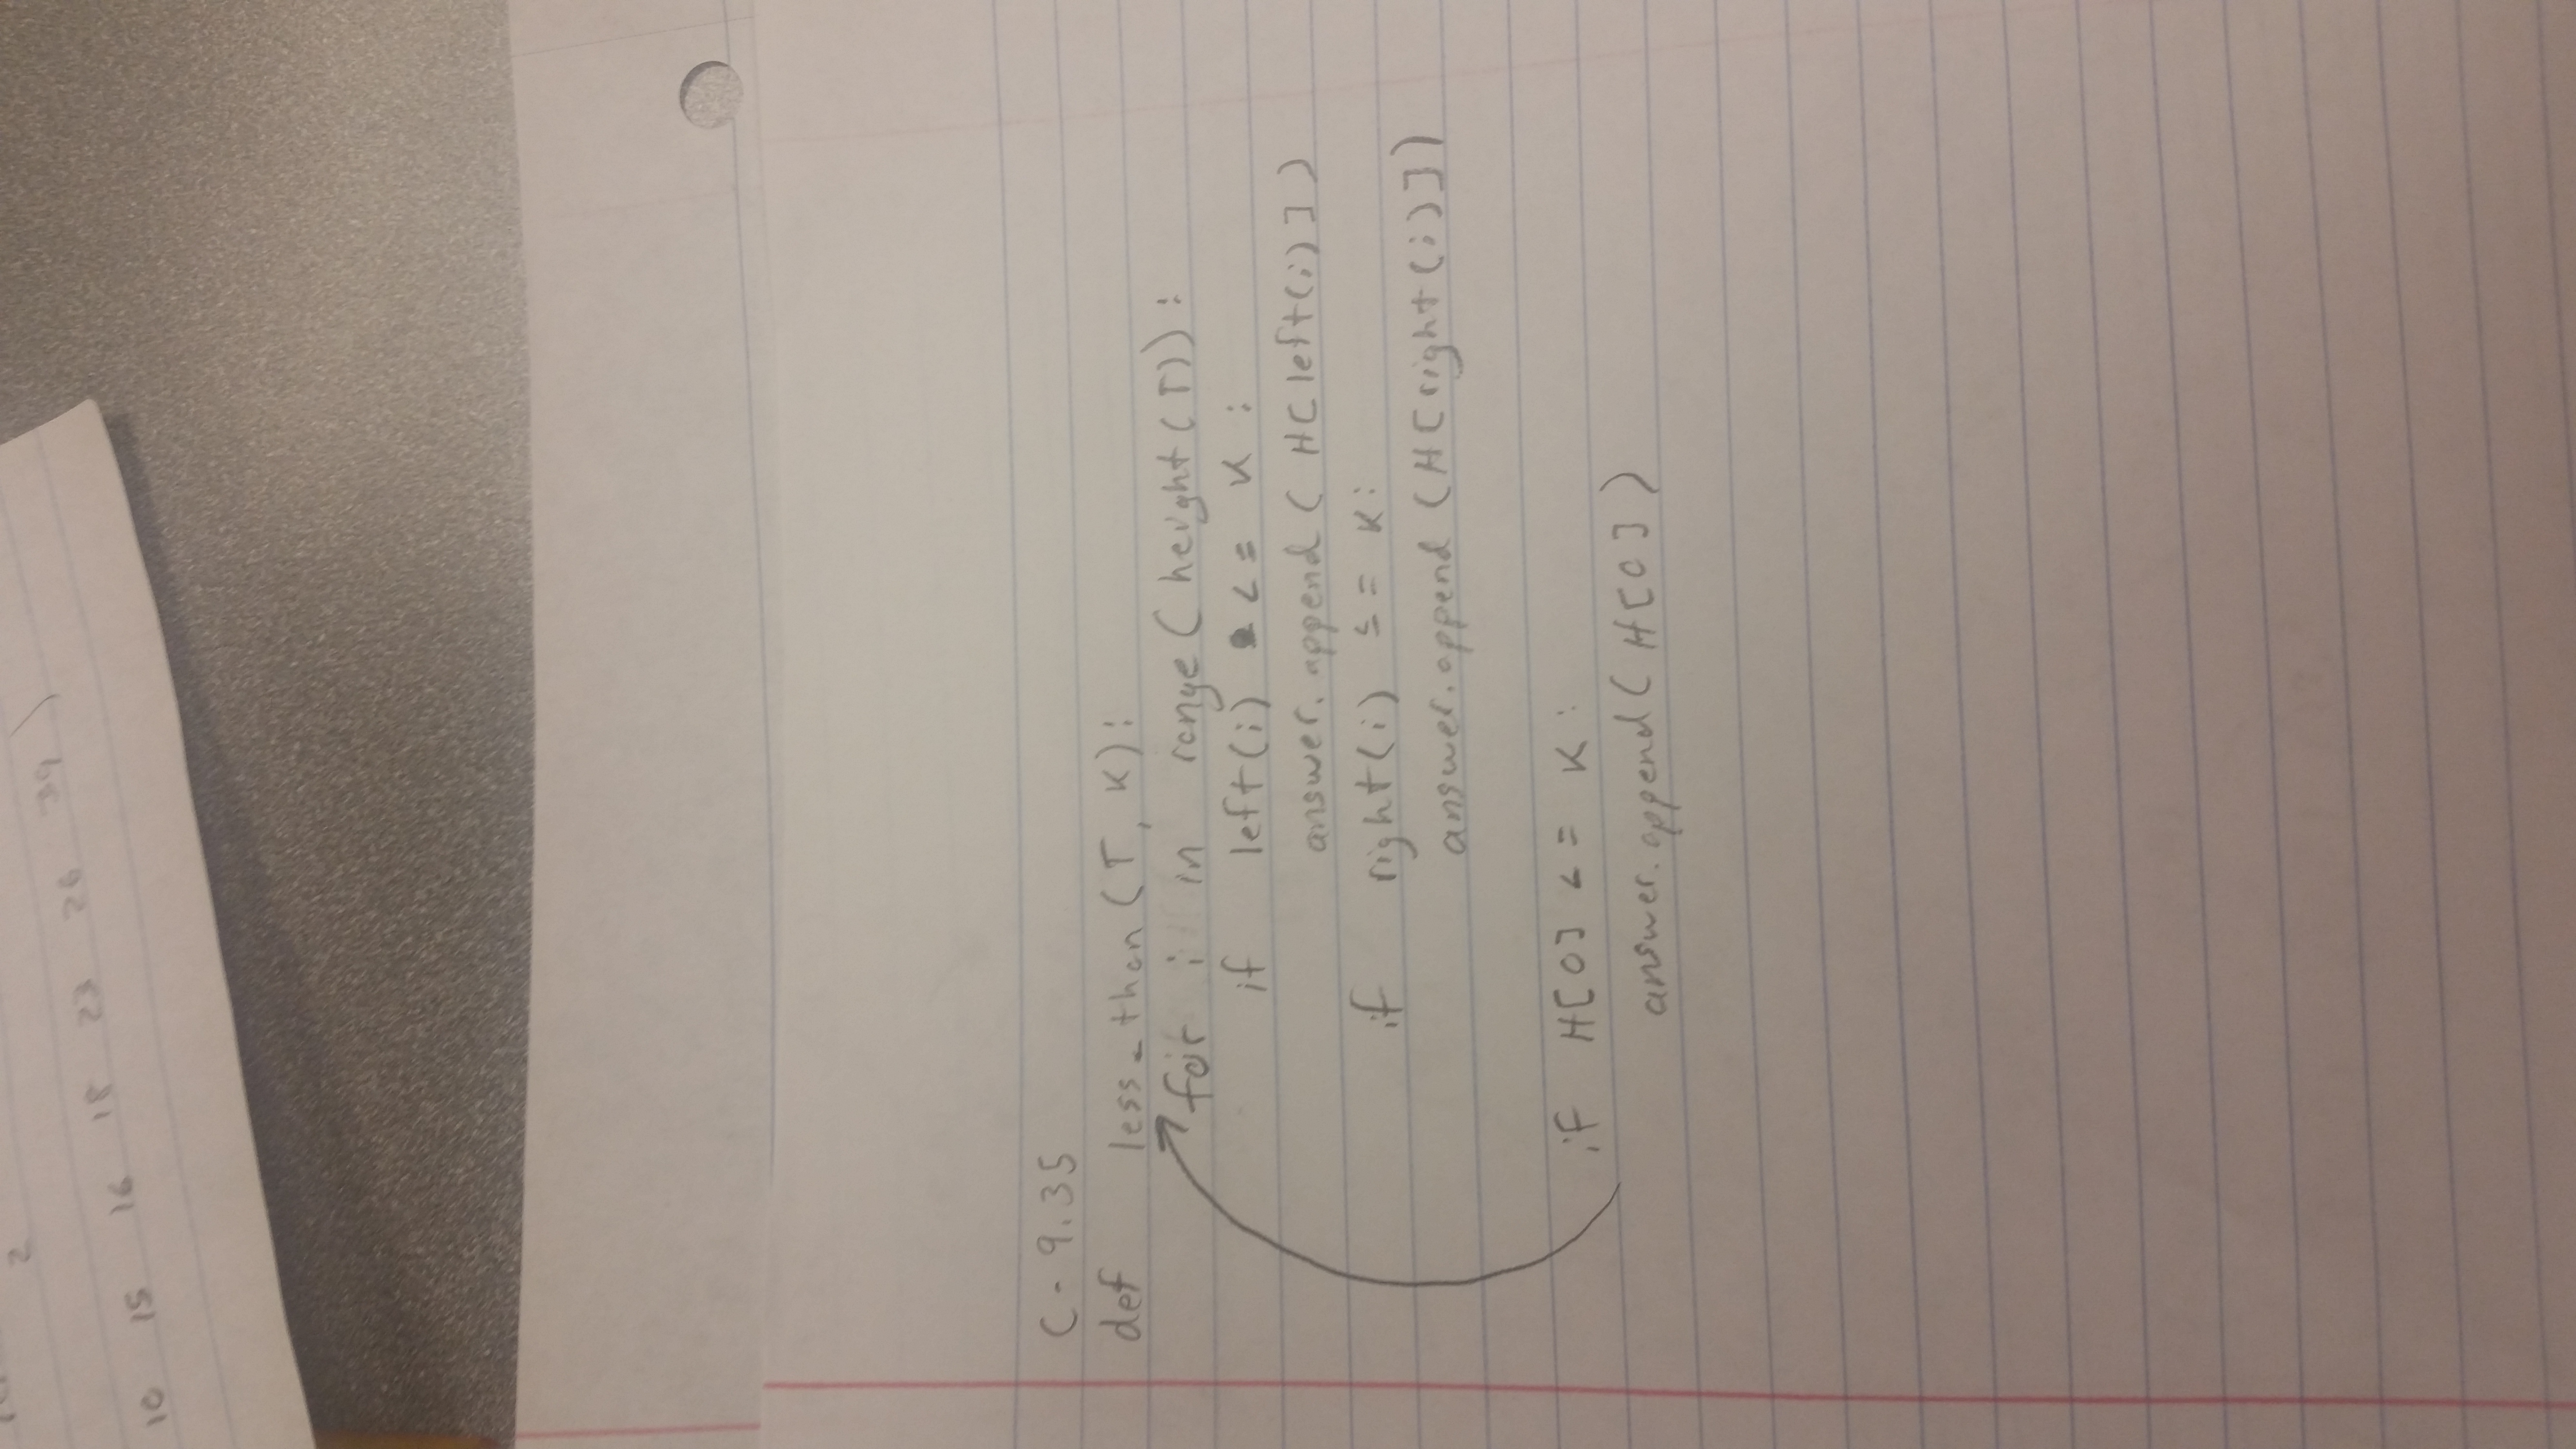 2
10 15 16 18 23 26 39 )
C - 9.35
def less_than (T, K):
for i in range ( height (T)) :
if left(i) <= K :
answer. append ( H[ left(i) ] )
if right(i) ≤ = K:
answer. append (H[right (i)])
if H[0] <= K :
answer. append ( H[0] )